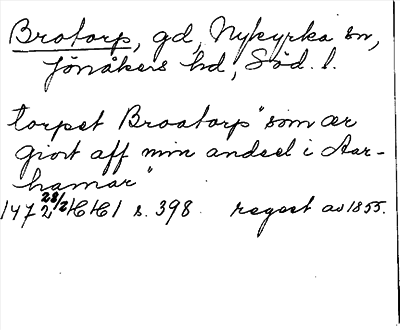 Brotorp, gd, Nykyrka sn,
Jönåkers hd, Söd. l.
torpet Broatorp "som ær
giort aff min andeel i Aar-
hamar"
1472 28/2 HH1 s. 398. regest av 1855.